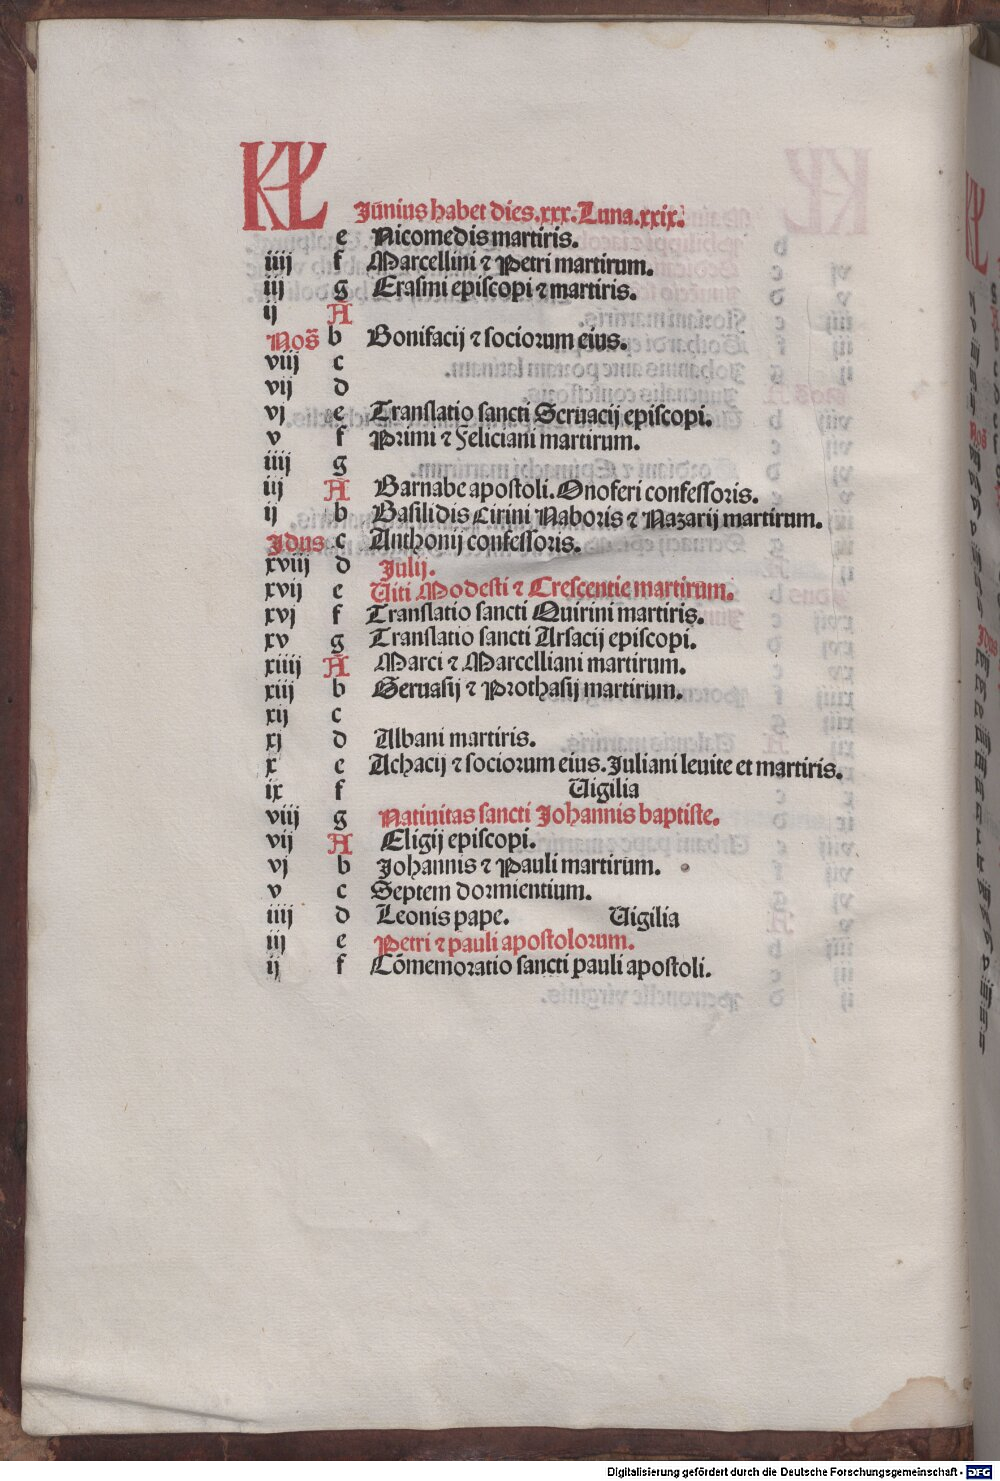 KL Jūnius habet dies.xxx.Luna.xxix.
e Nicomedis martiris.
iiij f Marcellini ⁊ Petri martirum.
iij g Erasmi episcopi ⁊ martiris.
ij A
Nōs b Bonifacij ⁊ sociorum eius.
viij c
vij d
vj e Translatio sancti Seruacij episcopi.
v f Primi ⁊ Feliciani martirum.
iiij g
iij A Barnabe apostoli.Onoferi confessoris.
ij b Basilidis Cirini Naboris ⁊ Nazarij martirum.
Jdus c Anthonij confessoris.
xviij d Julij.
xvij e Uiti Modesti ⁊ Crescentie martirum.
xvj f Translatio sancti Quirini martiris.
xv g Translatio sancti Arsacij episcopi.
xiiij A Marci ⁊ Marcelliani martirum.
xiij b Geruasij ⁊ Prothasij martirum.
xij c
xj d Albani martiris.
x e Achacij ⁊ sociorum eius.Juliani leuite et martiris.
ix f Uigilia
viij g Natiuitas sancti Johannis baptiste.
vij A Eligij episcopi.
vj b Johannis ⁊ Pauli martirum.
v c Septem dormientium.
iiij d Leonis pape. Uigilia
iij e Petri ⁊ pauli apostolorum.
ij f Cōmemoratio sancti pauli apostoli.
Digitalisierung gefördert durch die Deutsche Forschungsgemeinschaft - DFG